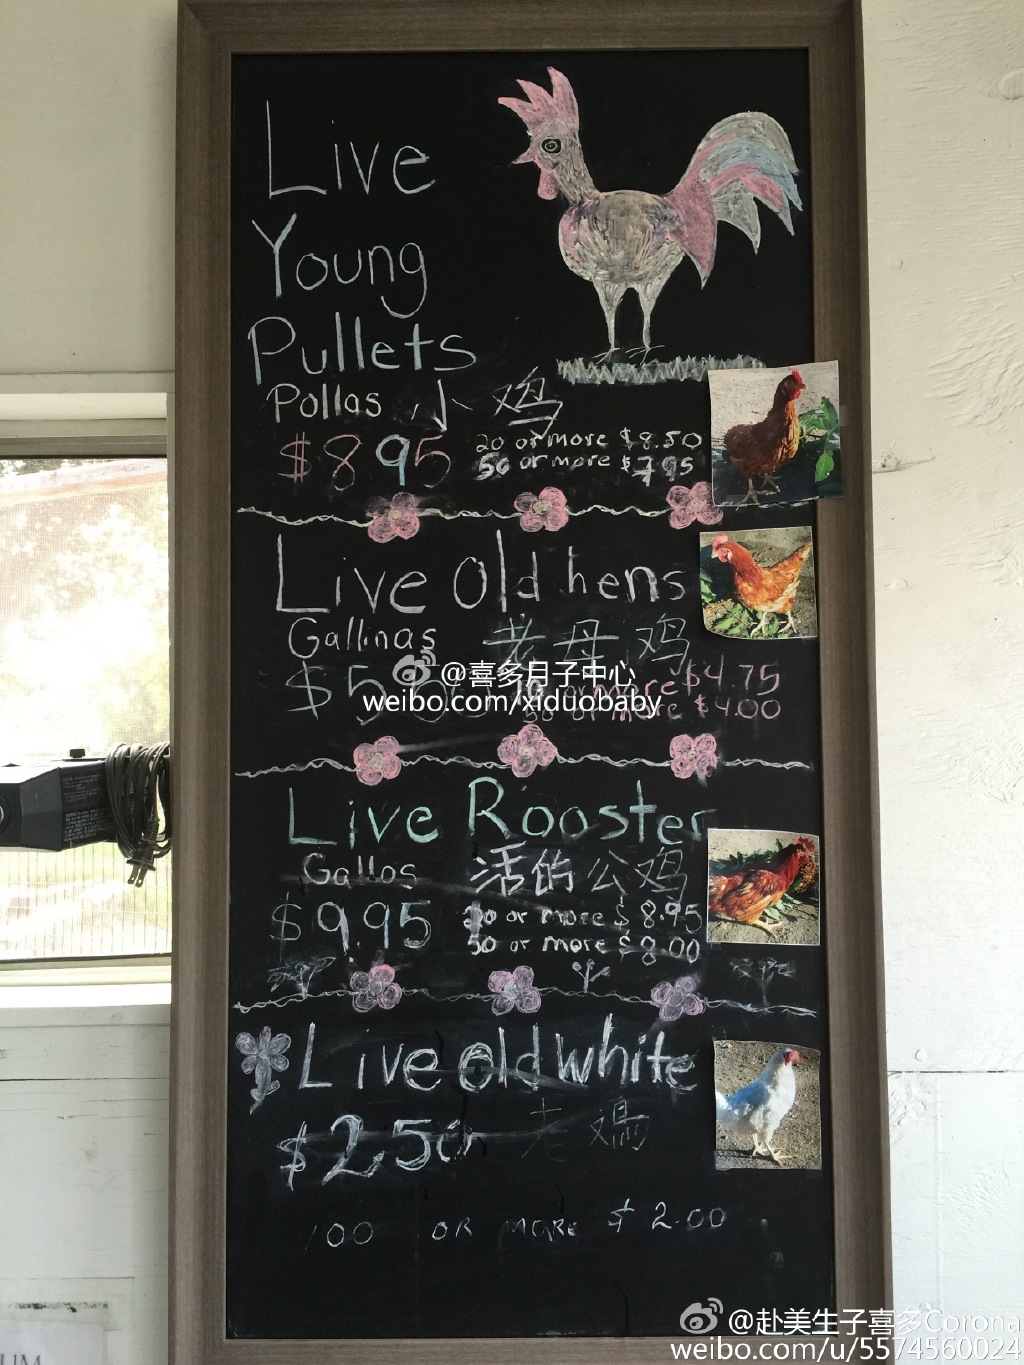 Live
Young
Pullets
Pollas 小鸡
$8.95
20 or more $8.50
50 or more $7.95
Live Old hens
Gallinas 老母鸡
or more $4.75
50 or more $4.00
@喜多月子中心
weibo.com/xiduobaby
Live Rooster
Gallos 活的公鸡
$9.95
20 or more $8.95
50 or more $8.00
Live old white
$2.50 老鸡
100 OR MORE $2.00
@赴美生子喜多Corona
weibo.com/u/5574560024
UM